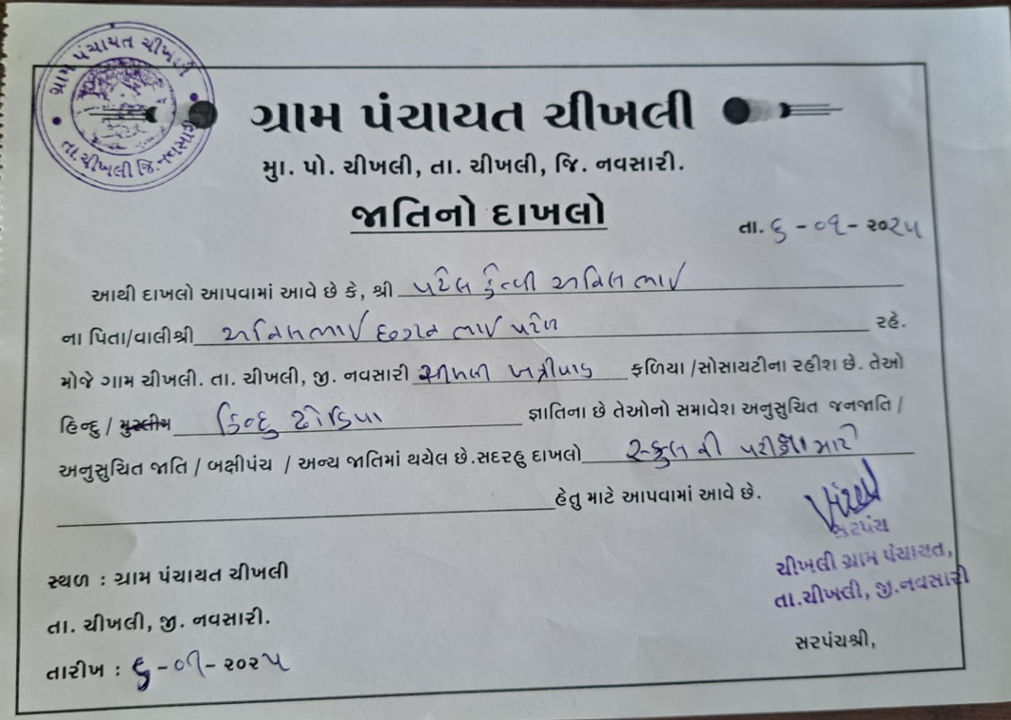 ગ્રામ પંચાયત ચીખલી
તા.ચીખલી જિ.નવસારી
ગ્રામ પંચાયત ચીખલી
મુા. પો. ચીખલી, તા. ચીખલી, જિ. નવસારી.
જાતિનો દાખલો
તા. ૬ - ૦૧ - ૨૦૨૫
આથી દાખલો આપવામાં આવે છે કે, શ્રી પટેલ અનિલભાઈ
ના પિતા/વાલીશ્રી અનિલભાઈ છગન ભાઈ પટેલ રહે.
મોજે ગામ ચીખલી. તા. ચીખલી, જી. નવસારી ચીખલી ખત્રીવાડ ફળિયા /સોસાયટીના રહીશ છે. તેઓ
હિન્દુ / મુસ્લીમ હિન્દુ ઢોડિયા જ્ઞાતિના છે તેઓનો સમાવેશ અનુસુચિત જનજાતિ /
અનુસુચિત જાતિ / બક્ષીપંચ / અન્ય જાતિમાં થયેલ છે.સદરહુ દાખલો સ્કુલ ની પરીક્ષા માટે
હેતુ માટે આપવામાં આવે છે.
સરપંચ
ચીખલી ગ્રામ પંચાયત,
તા.ચીખલી, જી.નવસારી
સરપંચશ્રી,
સ્થળ : ગ્રામ પંચાયત ચીખલી
તા. ચીખલી, જી. નવસારી.
તારીખ : ૬ - ૦૧ - ૨૦૨૫